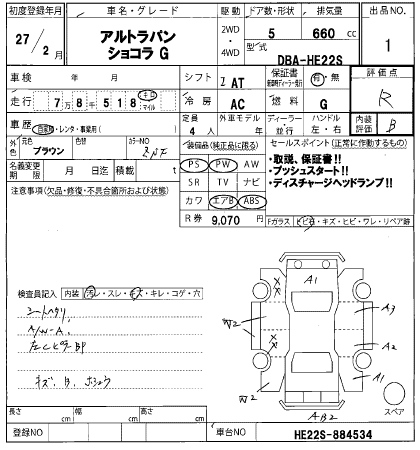 初度登録年月 車名・グレード 駆動 ドア数・形状 排気量 出品NO
27/2月 アルトラパン ショコラ G 2WD・4WD 5 660 cc 1
型式 DBA-HE22S
車検 年 月 シフト AT 保証書 有・無 評価点
走行 7万8千518 キロ マイル 冷房 AC 燃料 G R
車歴 自家用・レンタ・事業用( ) 定員 4人 外車モデル 年 ディーラー 並行 ハンドル 左・右 内装評価 B
外色 元色 ブラウン 色替 カラーNO ZNF
装備品(純正品に限る) セールスポイント(正常に作動するもの)
名義変更期限 月 日迄 積載 t PS PW AW ・取説、保証書!!
注意事項(欠品・修復・不具合箇所および状態) SR TV ナビ ・プッシュスタート!!
カワ エアB ABS ・ディスチャージヘッドランプ!!
R券 9,070 円 Fガラス ヒビ・キズ・ヒビ・ワレ・リペア跡
検査員記入 内装 汚レ・スレ・キズ・キレ・コゲ・穴
シートヘタリ
A/W-A
左CピラーBP
キズ、B、ホシュウ
A1
W2
W2
A3
A2
A1
AB2
スペア
長さ cm 幅 cm 高さ cm
登録NO 車台NO HE22S-884534